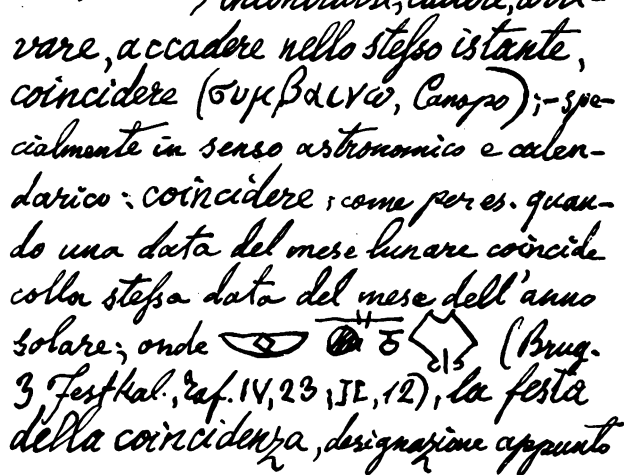 incontrarsi, cadere, arri-
vare, accadere nello stesso istante,
coincidere (συμβαινω, Canopo);-spe-
cialmente in senso astronomico e calen-
darico: coincidere; come per es. quan-
do una data del mese lunare coincide
colla stessa data del mese dell'anno
solare; onde (Brug.
3 Festkal., Taf. IV, 23; II, 12), la festa
della coincidenza, designazione appunto